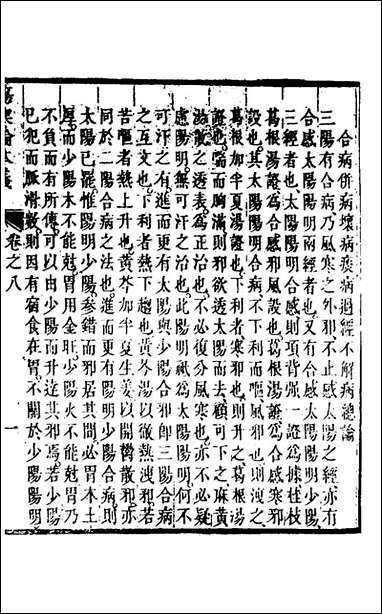 合病併病壞病痰病過經不解病總論
三陽有合病乃風寒之外邪不止感太陽之經亦有
合感太陽陽明兩經者也又有合感太陽陽明少陽
三經者也太陽陽明合感則項背強一證為據桂枝
葛根湯證為合感風邪設也葛根湯證為合感寒邪
設也其太陽陽明合病不下利而嘔風邪也則洩之
葛根加半夏湯證也下利者寒邪也則升之葛根湯
證也喘而胸滿則邪欲透太陽而去顧可下之麻黃
湯散之透表為正治也不必復分風寒也亦不必疑
慮陽明無可汗之治也此陽明祇為太陽陽明何不
可汗之有進而更有太陽與少陽合邪即三陽合病
之互文也下利者熱下趨也黃芩湯以徹熱洩邪若
苦嘔者熱上升也黃芩加半夏生姜以開鬱散邪亦
同於二陽合病之法也進而更有陽明少陽合病則
太陽已罷惟陽明少陽參錯而邪居其間必胃本土
旺而少陽木不能尅胃用金旺少陽火不能尅胃乃
不負而有所傳可以由少陽而升達其邪焉若少陽
已犯而脈滑數則因有宿食在胃不關於少陽陽明
卷之八
一